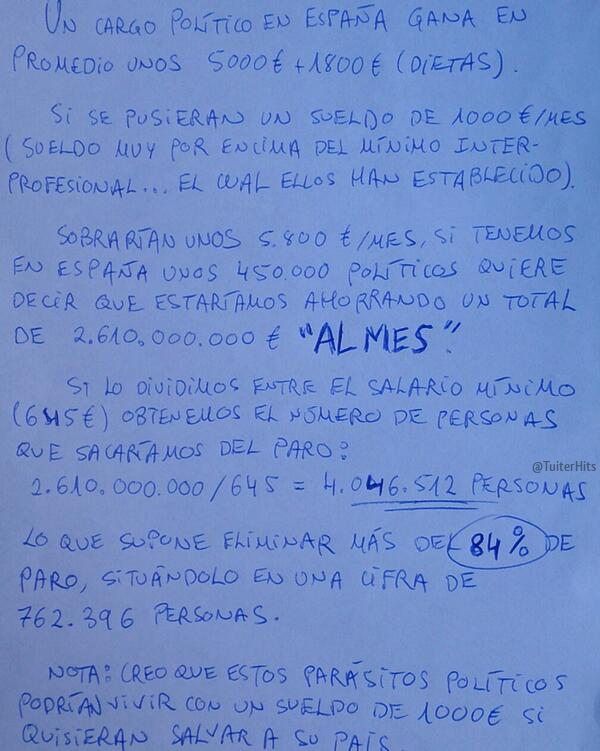 UN CARGO POLÍTICO EN ESPAÑA GANA EN
PROMEDIO UNOS 5000€ + 1800€ (DIETAS).
SI SE PUSIERAN UN SUELDO DE 1000€/MES
(SUELDO MUY POR ENCIMA DEL MÍNIMO INTER-
PROFESIONAL... EL CUAL ELLOS HAN ESTABLECIDO).
SOBRARÍAN UNOS 5.800 €/MES, SI TENEMOS
EN ESPAÑA UNOS 450.000 POLÍTICOS QUIERE
DECIR QUE ESTARÍAMOS AHORRANDO UN TOTAL
DE 2.610.000.000 € "AL MES".
SI LO DIVIDIMOS ENTRE EL SALARIO MÍNIMO
(645€) OBTENEMOS EL NÚMERO DE PERSONAS
QUE SACARÍAMOS DEL PARO:
@TuiterHits
2.610.000.000/645 = 4.046.512 PERSONAS
LO QUE SUPONE ELIMINAR MÁS DEL 84% DE
PARO, SITUÁNDOLO EN UNA CIFRA DE
762.396 PERSONAS.
NOTA: CREO QUE ESTOS PARÁSITOS POLÍTICOS
PODRÍAN VIVIR CON UN SUELDO DE 1000€ SI
QUISIERAN SALVAR A SU PAÍS